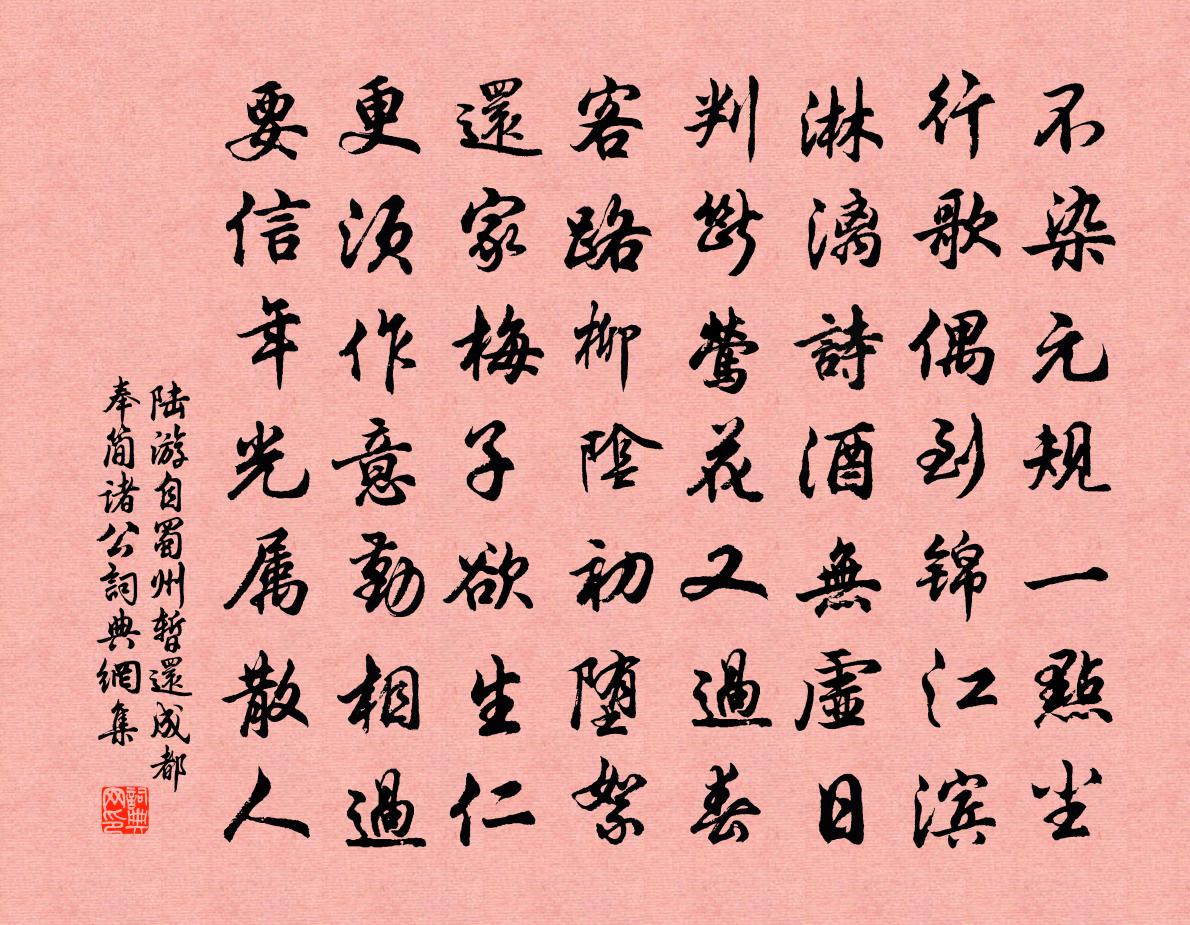 不染元規一點尘
行歌偶到锦江滨
淋漓詩酒無虚日
判斷鶯花又過春
客路柳陰初堕絮
還家梅子欲生仁
更須作意勤相過
要信年光属散人
陆游自蜀州暫還成都
奉简诸公詞典網集
詞典网印